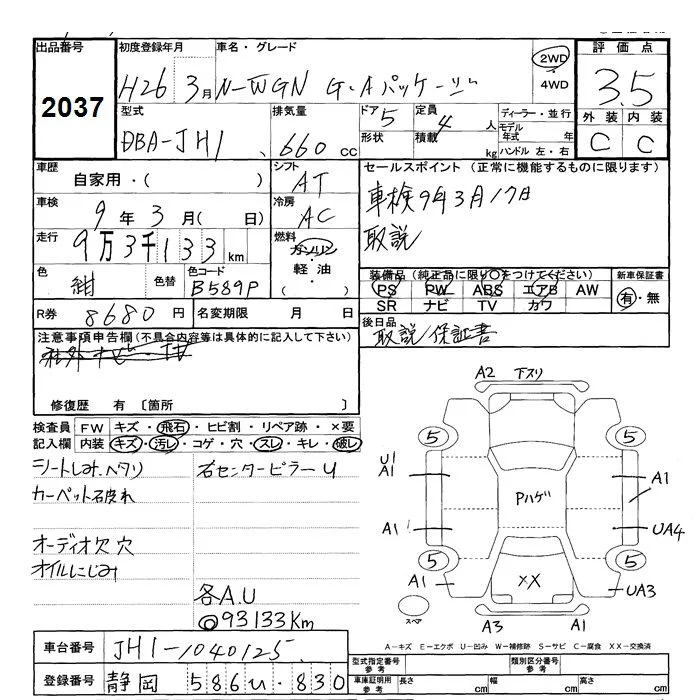 出品番号 初度登録年月 車名・グレード 評価点
2037 H26 3月 N-WGN G・Aパッケージ 2WD・4WD 3.5
型式 排気量 ドア 5 定員 4 人 ディーラー・並行 外装 内装
DBA-JH1 660 cc 形状 積載 kg モデル年式 年 ハンドル 左・右 C C
車歴 シフト セールスポイント (正常に機能するものに限ります)
自家用・( ) AT 車検9年3月17日
車検 9年3月( 日) 冷房 AC 取説
走行 9万3千133km 燃料 ガソリン・軽油・( )
装備品 (純正品に限り○をつけてください) 新車保証書
色 紺 色替 色コード B589P PS PW ABS エアB AW 有・無
SR ナビ TV カワ
R券 8680円 名変期限 月 日 後日品
取説/保証書
注意事項申告欄(不具合内容等は具体的に記入して下さい)
社外ナビ・TV
修復歴 有〔箇所 〕
検査員記入欄 FW キズ・飛石・ヒビ割・リペア跡・×要
内装 キズ・汚レ・コゲ・穴・スレ・キレ・破レ
シートしみ、ヘタリ 右センターピラーU
カーペット破れ
オーディオ欠 穴
オイルにじみ
各A.U
◎93133Km
A2 下スリ
5 5
U1
A1 A1
Pハゲ
A1 UA4
5 5
A1 XX UA3
スペア
A3 A1
A-キズ E-エクボ U-凹み W-補修跡 S-サビ C-腐食 XX-交換済
車台番号 JH1-1040125 型式指定番号 参考 類別区分番号 参考
登録番号 静岡 586 830 車庫証明用 参考 長さ cm 幅 cm 高さ cm